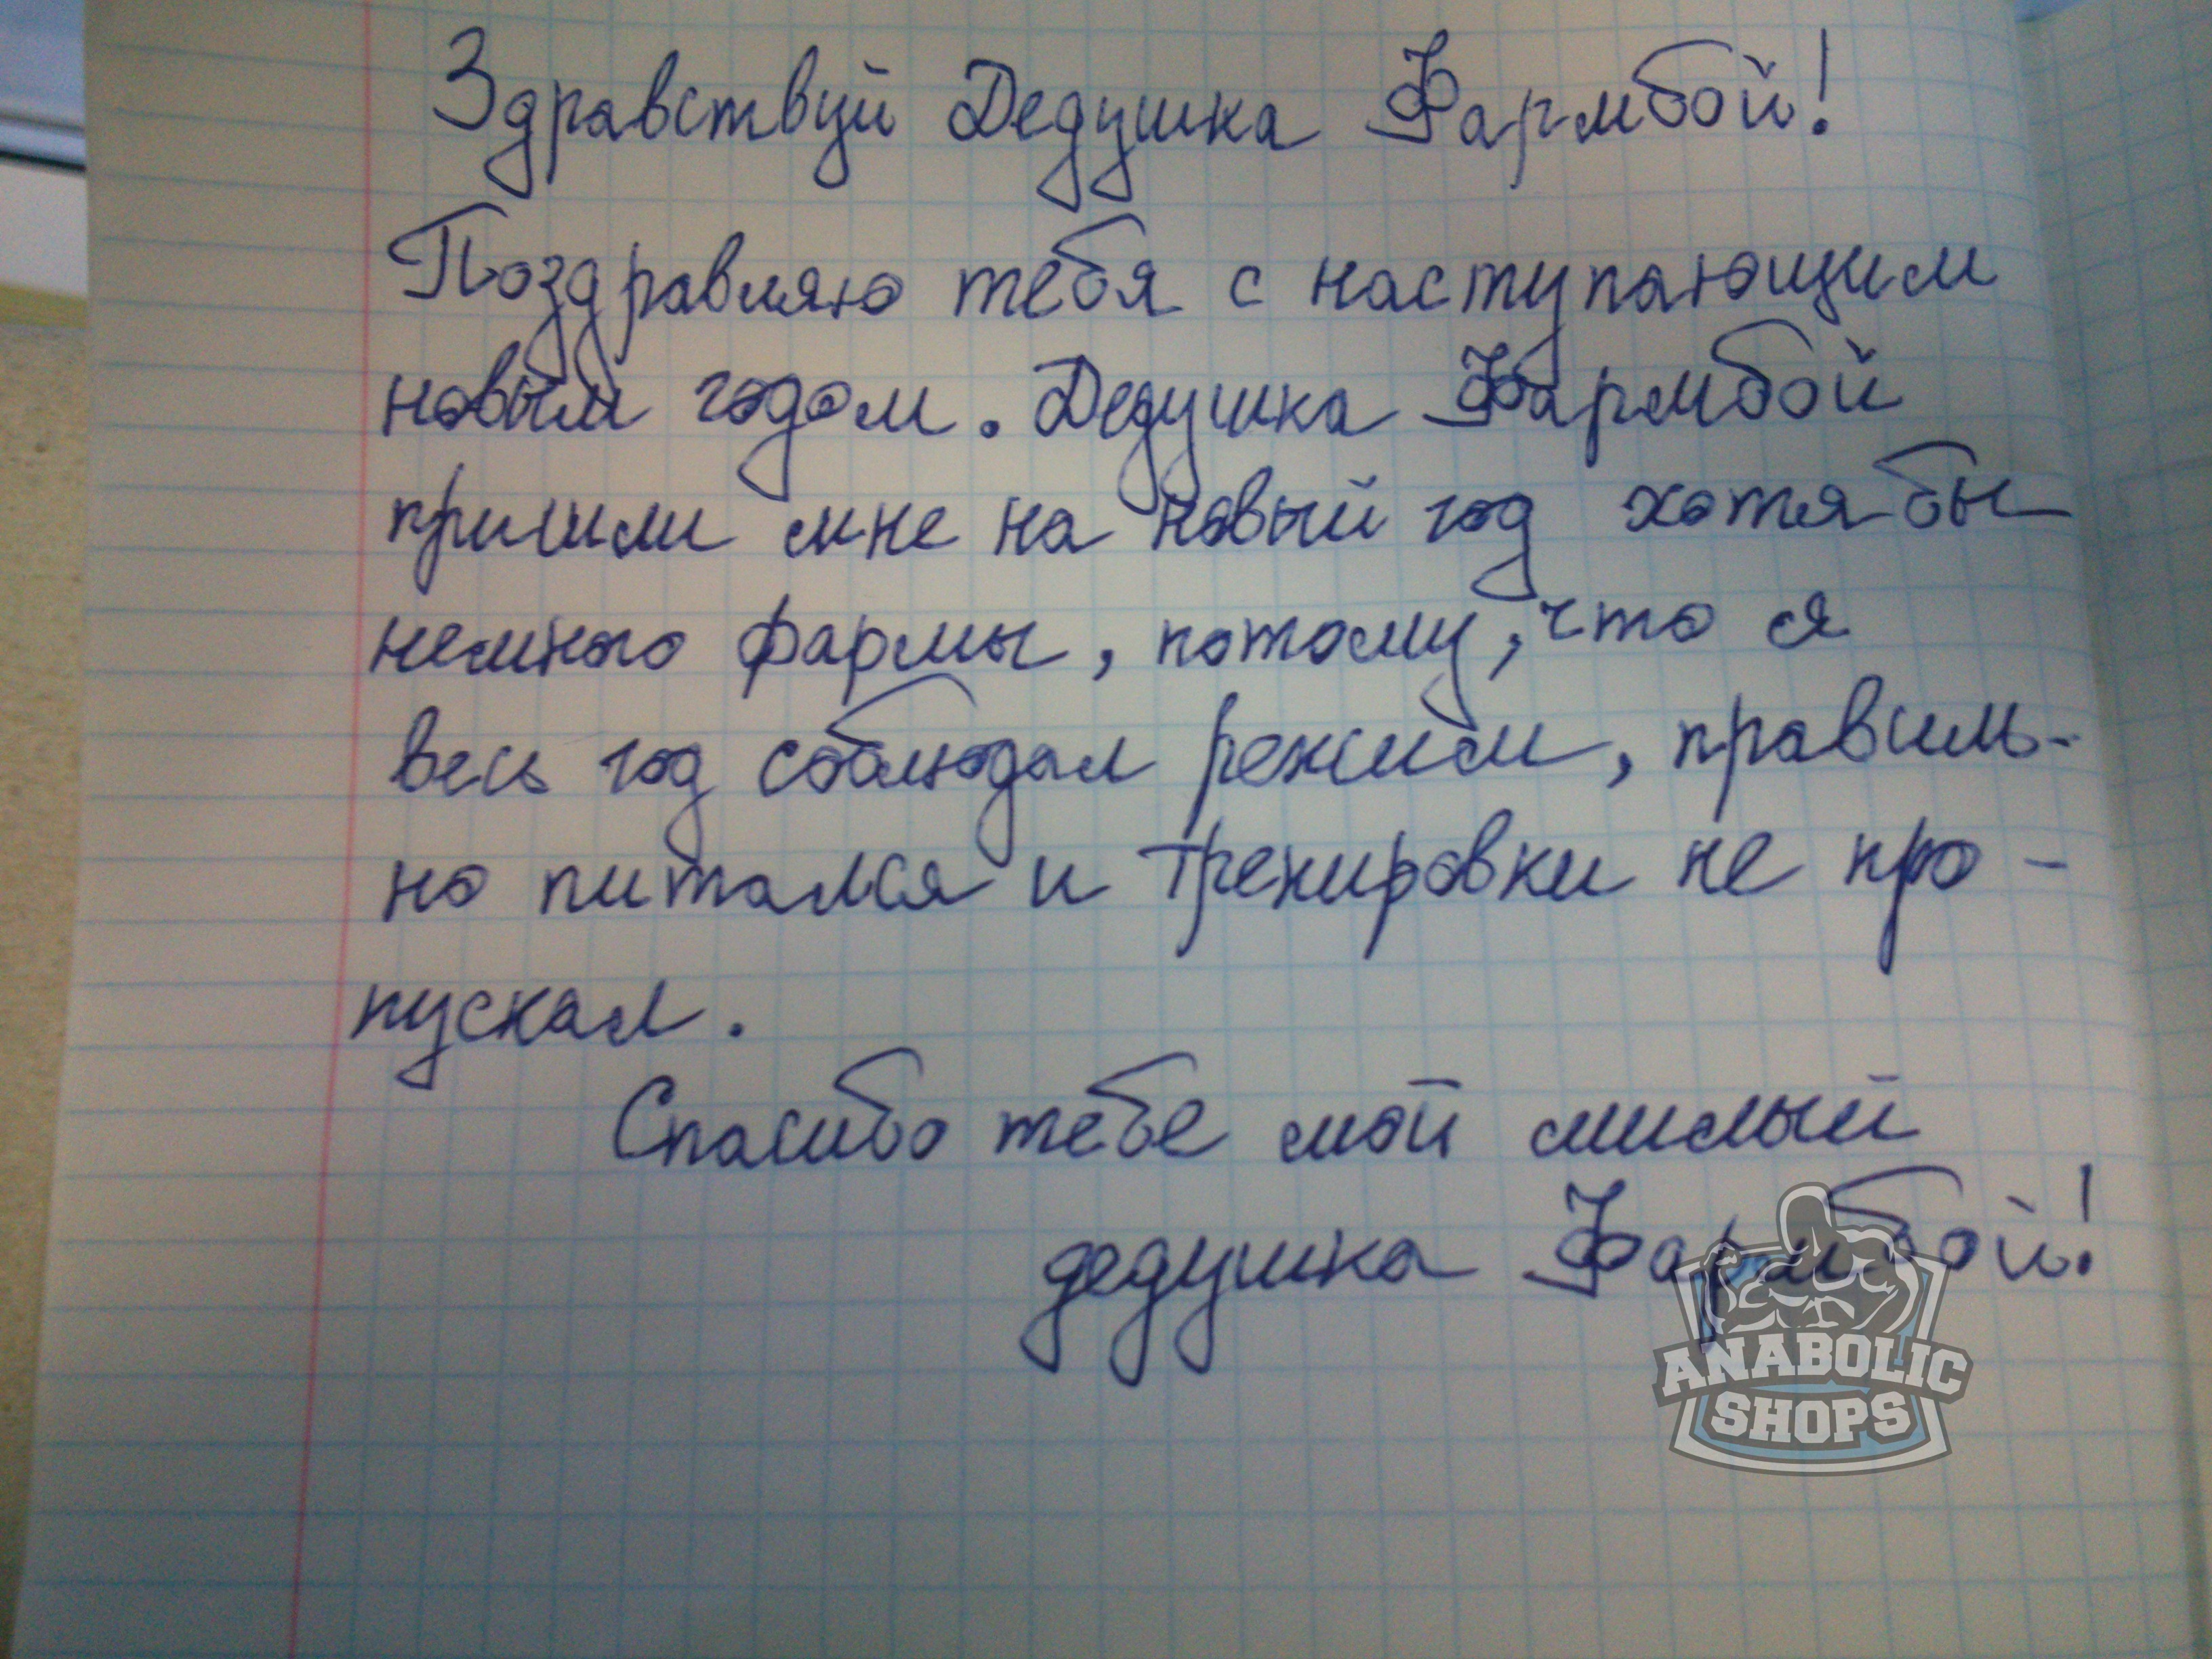 Здравствуй Дедушка Фармбой!
Поздравляю тебя с наступающим
новым годом. Дедушка Фармбой
пришли мне на новый год хотя бы
немного фармы, потому, что я
весь год соблюдал режим, правиль-
но питался и тренировки не про-
пускал.
Спасибо тебе мой милый
дедушка Фармбой!
ANABOLIC
SHOPS